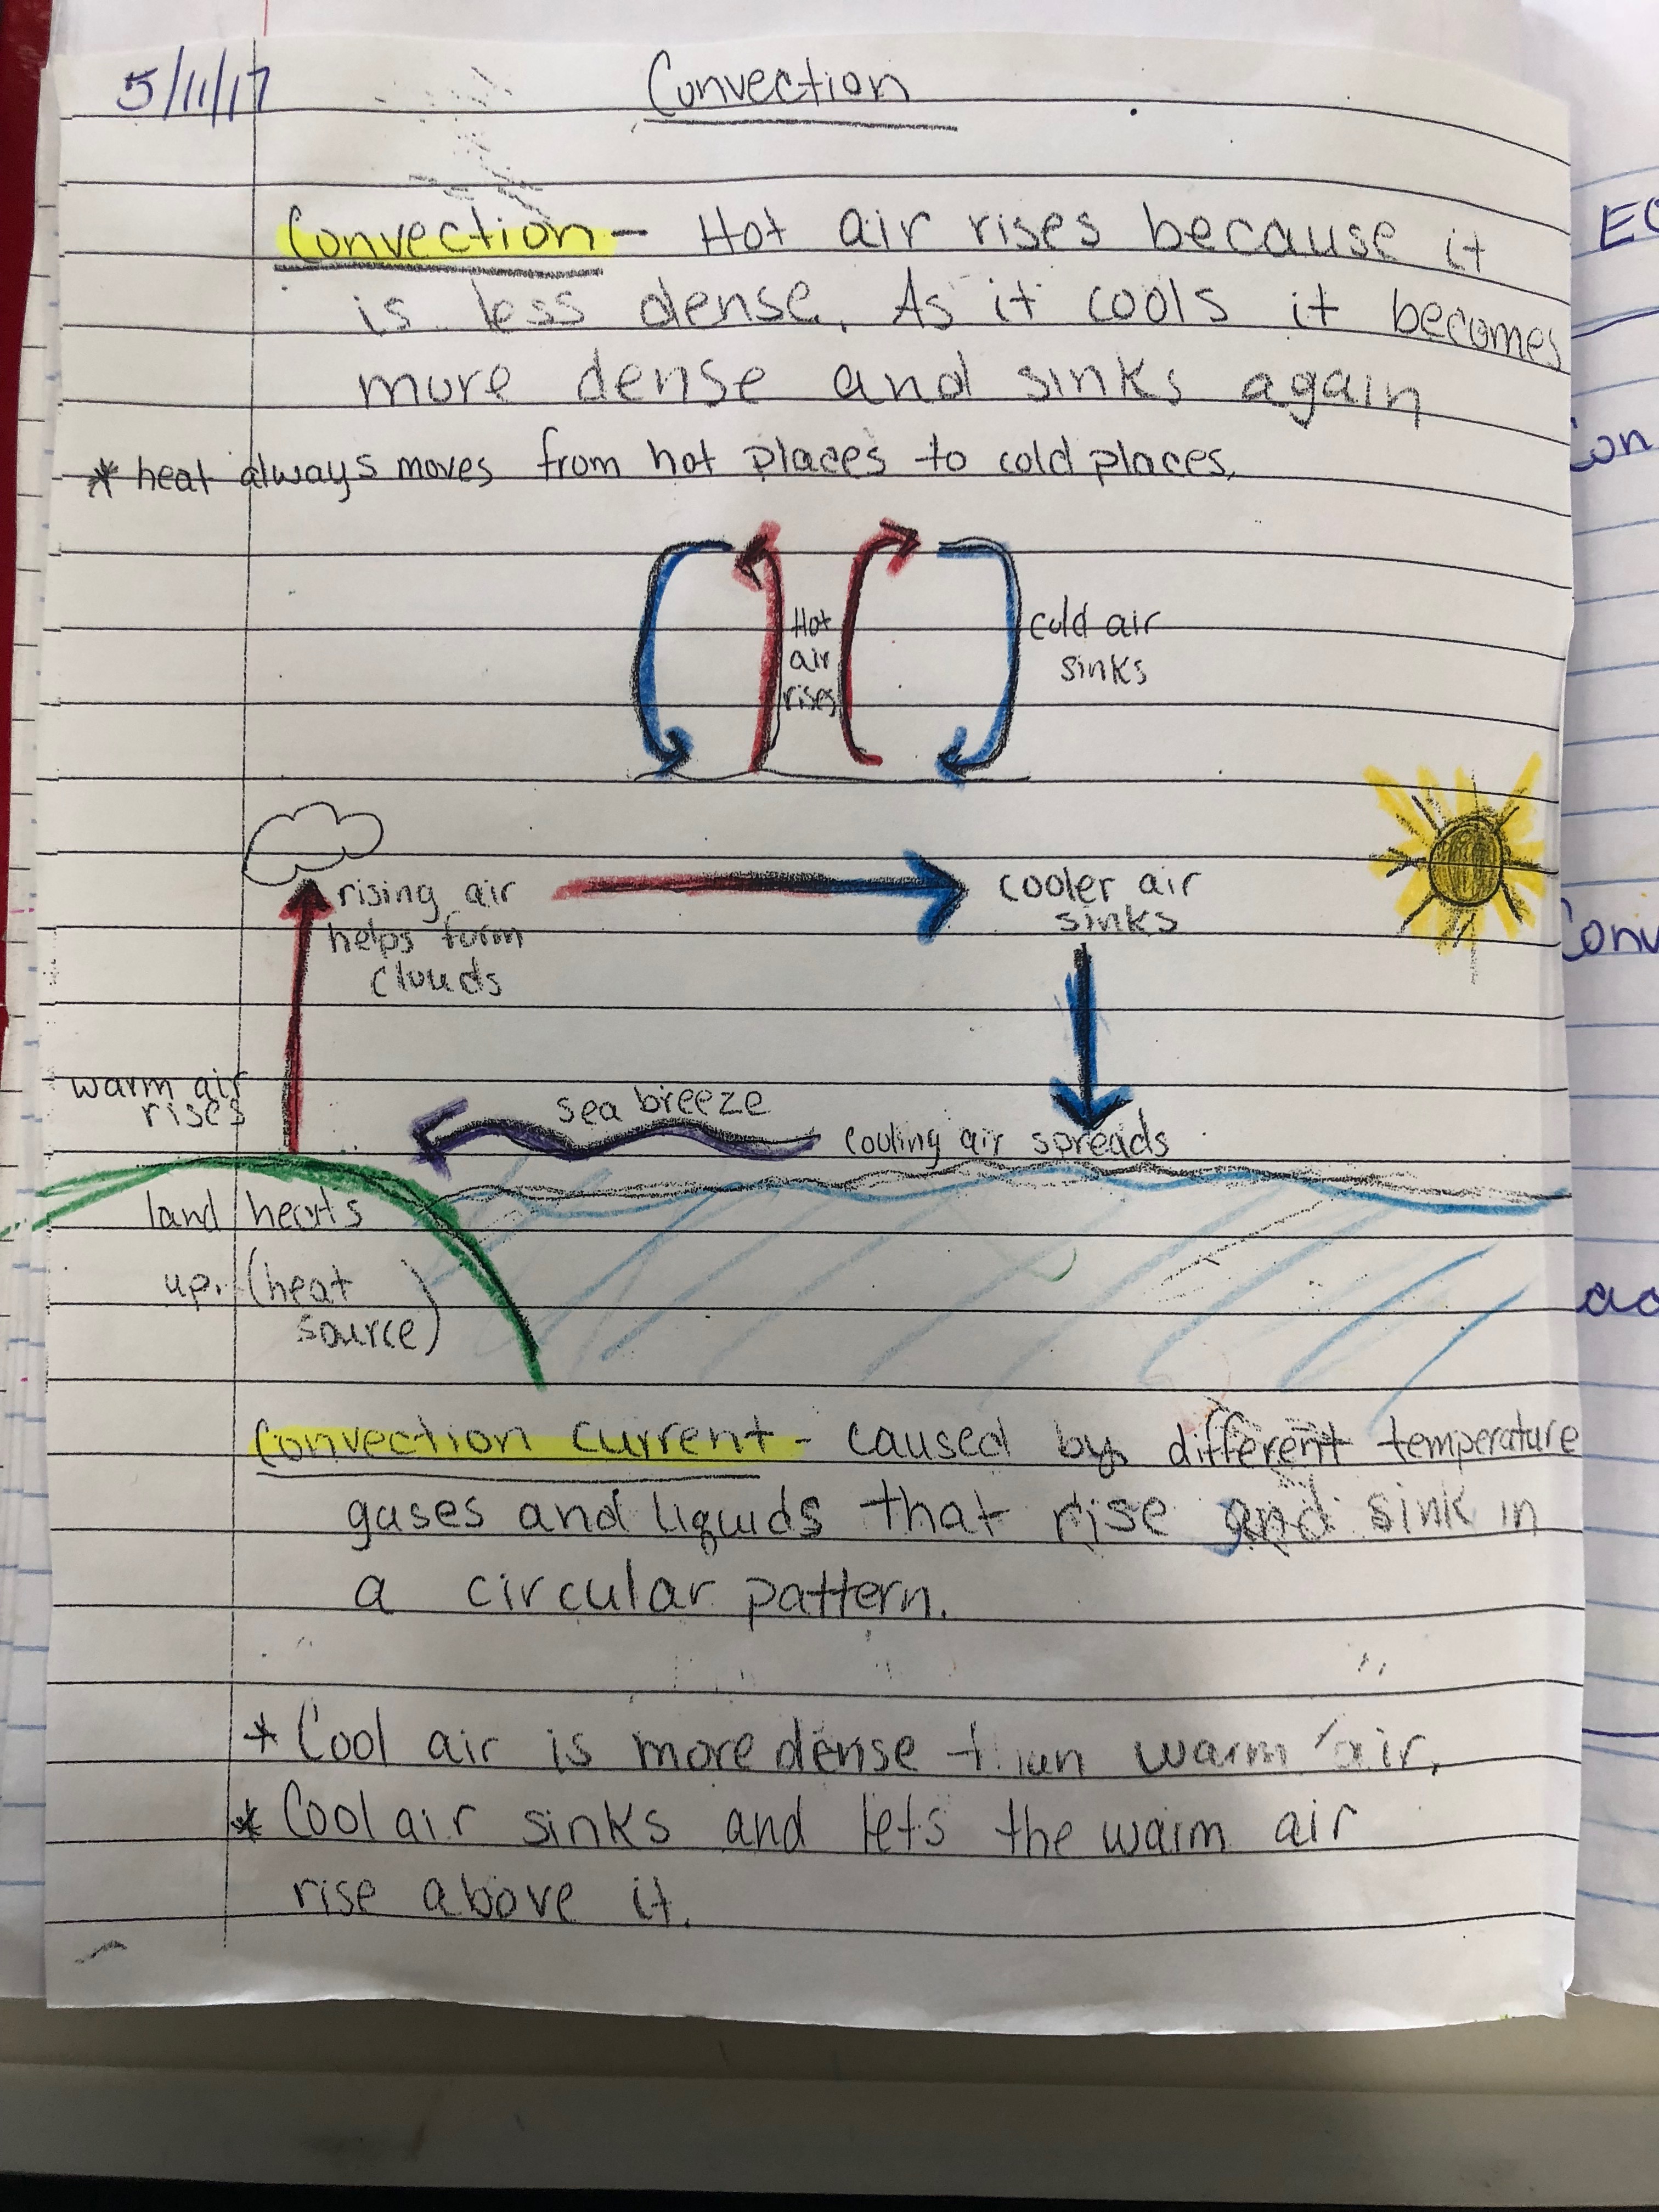 5/11/17
Convection
Convection - Hot air rises because it
is less dense. As it cools it becomes
more dense and sinks again
* heat always moves from hot places to cold places.
Hot
air
rises
cold air
sinks
rising air
helps form
clouds
cooler air
sinks
warm air
rises
sea breeze
cooling air spreads
land heats
up. (heat
source)
Convection current - caused by different temperature
gases and liquids that rise and sink in
a circular pattern.
* Cool air is more dense than warm air.
* Cool air sinks and lets the warm air
rise above it.
EC
Con
Conv